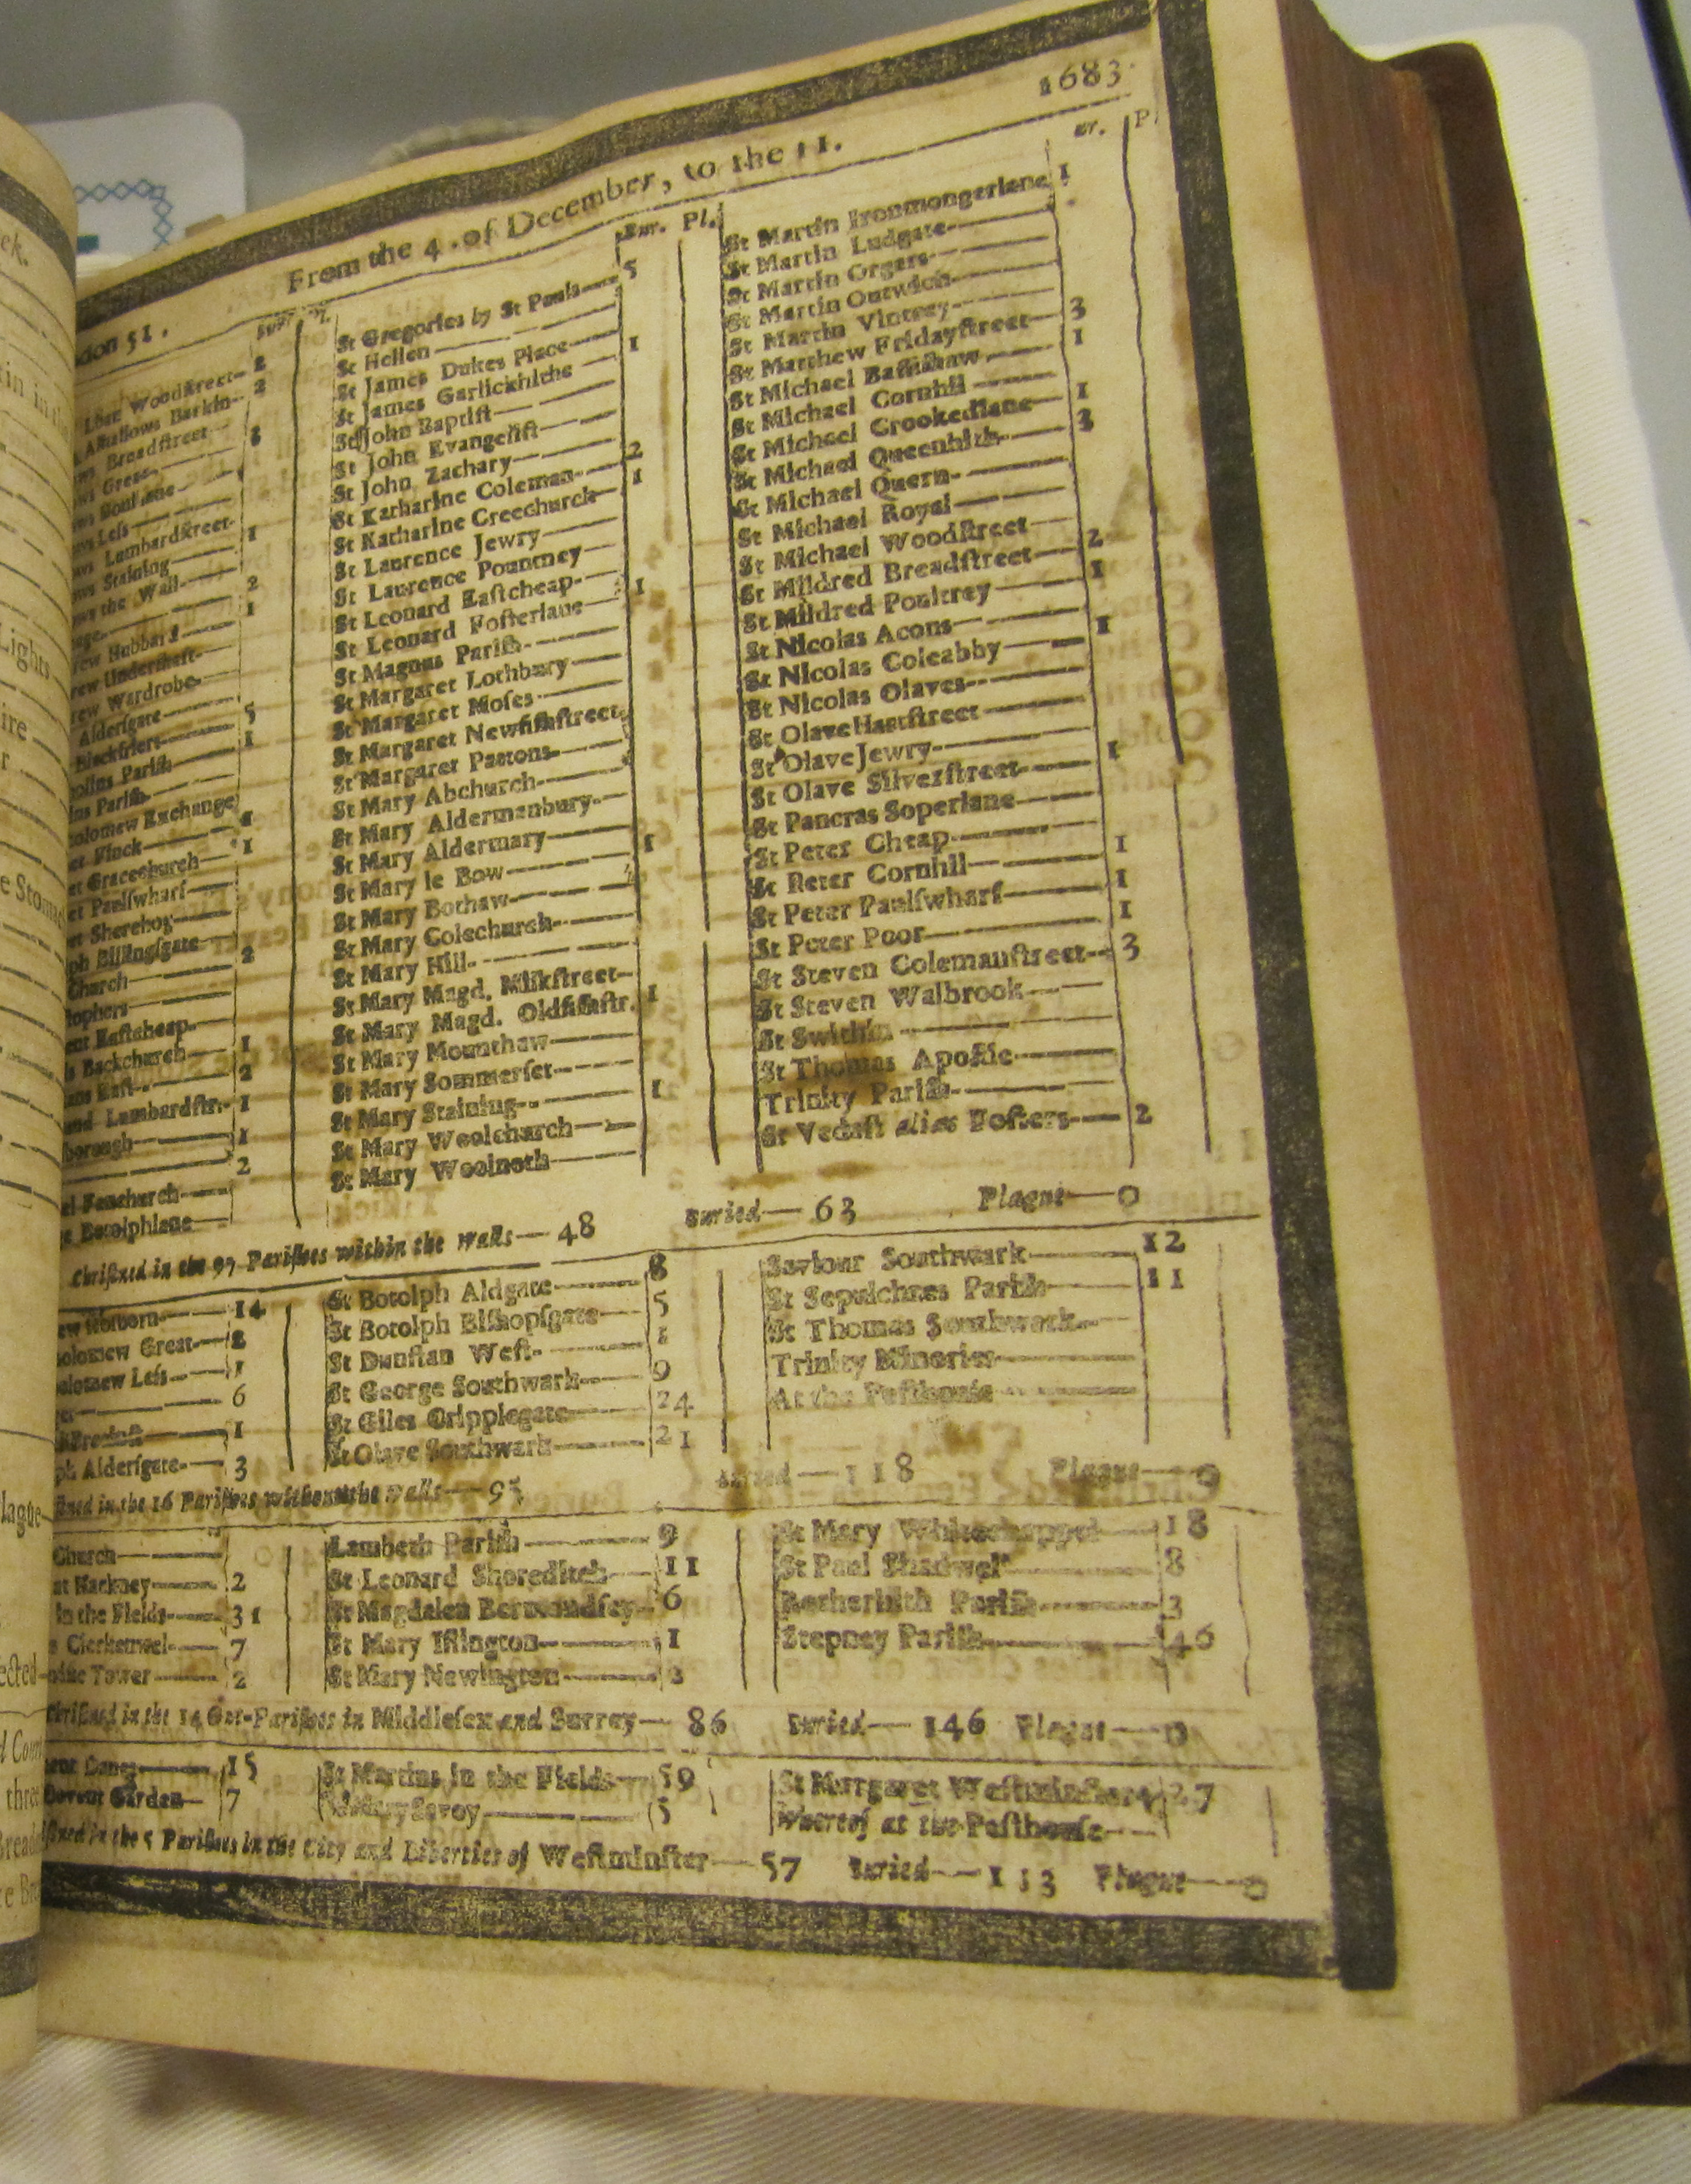 1683.
From the 4. of December, to the 11.
don 51.
Bur. Pl.
Woodſtreet- 2
Alhallows Barkin- 2
Breadſtreet
Leſs
Lambardſtreet-
Staining 1
the Wall-
2
rew Hubbard 1
rew Underſhaft-
rew Wardrobe-
Alderſgate
Blackfriers 5
olins Pariſh 1
ins Pariſh-
olomew Exchange
et Finck
et Gracechurch 1
et Paulſwharf
et Sherehog
ph Billingſgate
Church 2
tophers
ent Eaſtcheap-
s Backchurch 1
ans Eaſt- 2
und Lambardſtr. 1
borough 1
2
el Fenchurch
e Botolphlane
St Gregories by St Pauls 5
St Hellen
St James Dukes Place 1
St James Garlickhithe
St John Baptiſt
St John Evangeliſt
St John Zachary 2
St Katharine Coleman 1
St Katharine Creechurch
St Laurence Jewry
St Laurence Pountney
St Leonard Eaſtcheap 1
St Leonard Foſterlane
St Magnus Pariſh
St Margaret Lothbury
St Margaret Moſes
St Margaret Newfiſhſtreet
St Margaret Pattons
St Mary Abchurch
St Mary Aldermanbury
St Mary Aldermary 1
St Mary le Bow
St Mary Bothaw
St Mary Colechurch
St Mary Hill
St Mary Magd. Milkſtreet 1
St Mary Magd. Oldfiſhſtr.
St Mary Mounthaw
St Mary Sommerſet 1
St Mary Staining
St Mary Woolchurch
St Mary Woolnoth
St Martin Ironmongerlane 1
St Martin Ludgate
St Martin Orgars
St Martin Outwich
St Martin Vintrey 3
St Matthew Fridayſtreet 1
St Michael Baſſiſhaw
St Michael Cornhil 1
St Michael Crookedlane 3
St Michael Queenhith
St Michael Quern
St Michael Royal
St Michael Woodſtreet 2
St Mildred Breadſtreet 1
St Mildred Poultrey
St Nicolas Acons 1
St Nicolas Coleabby
St Nicolas Olaves
St Olave Hartſtreet
St Olave Jewry 1
St Olave Silverſtreet
St Pancras Soperlane
St Peter Cheap 1
St Peter Cornhil 1
St Peter Paulſwharf 1
St Peter Poor
St Steven Colemanſtreet 3
St Steven Walbrook
St Swithin
St Thomas Apoſtle
Trinity Pariſh
St Vedaſt alias Foſters 2
Chriſtned in the 97 Pariſhes within the walls— 48 Buried— 63 Plague— 0
ew Holborn 14
olomew Great 2
olomew Leſs 1
6
1
ph Alderſgate 3
St Botolph Aldgate 8
St Botolph Biſhopſgate 5
St Dunſtan Weſt
St George Southwark 9
St Giles Cripplegate 24
St Olave Southwark 21
Saviour Southwark 12
St Sepulchres Pariſh 11
St Thomas Southwark
Trinity Minories
At the Peſthouſe
ſtned in the 16 Pariſhes without the walls— 95 Buried— 118 Plague— 0
Church
at Hackney 2
in the Fields 31
s Clerkenwel 7
Tower 2
Lambeth Pariſh 9
St Leonard Shoreditch 11
St Magdalen Bermondſey 6
St Mary Iſlington 1
St Mary Newington
St Mary Whitechappel 18
St Paul Shadwel 8
Rotherhith Pariſh 3
Stepney Pariſh 46
Chriſtned in the 14 Out-Pariſhes in Middleſex and Surrey— 86 Buried— 146 Plague— 0
ent Danes 15
Covent Garden 7
St Martins in the Fields 59
Savoy 5
St Margaret Weſtminſter 27
Whereof at the Peſthouſe
ſtned in the 5 Pariſhes in the City and Liberties of Weſtminſter— 57 Buried— 113 Plague— 0